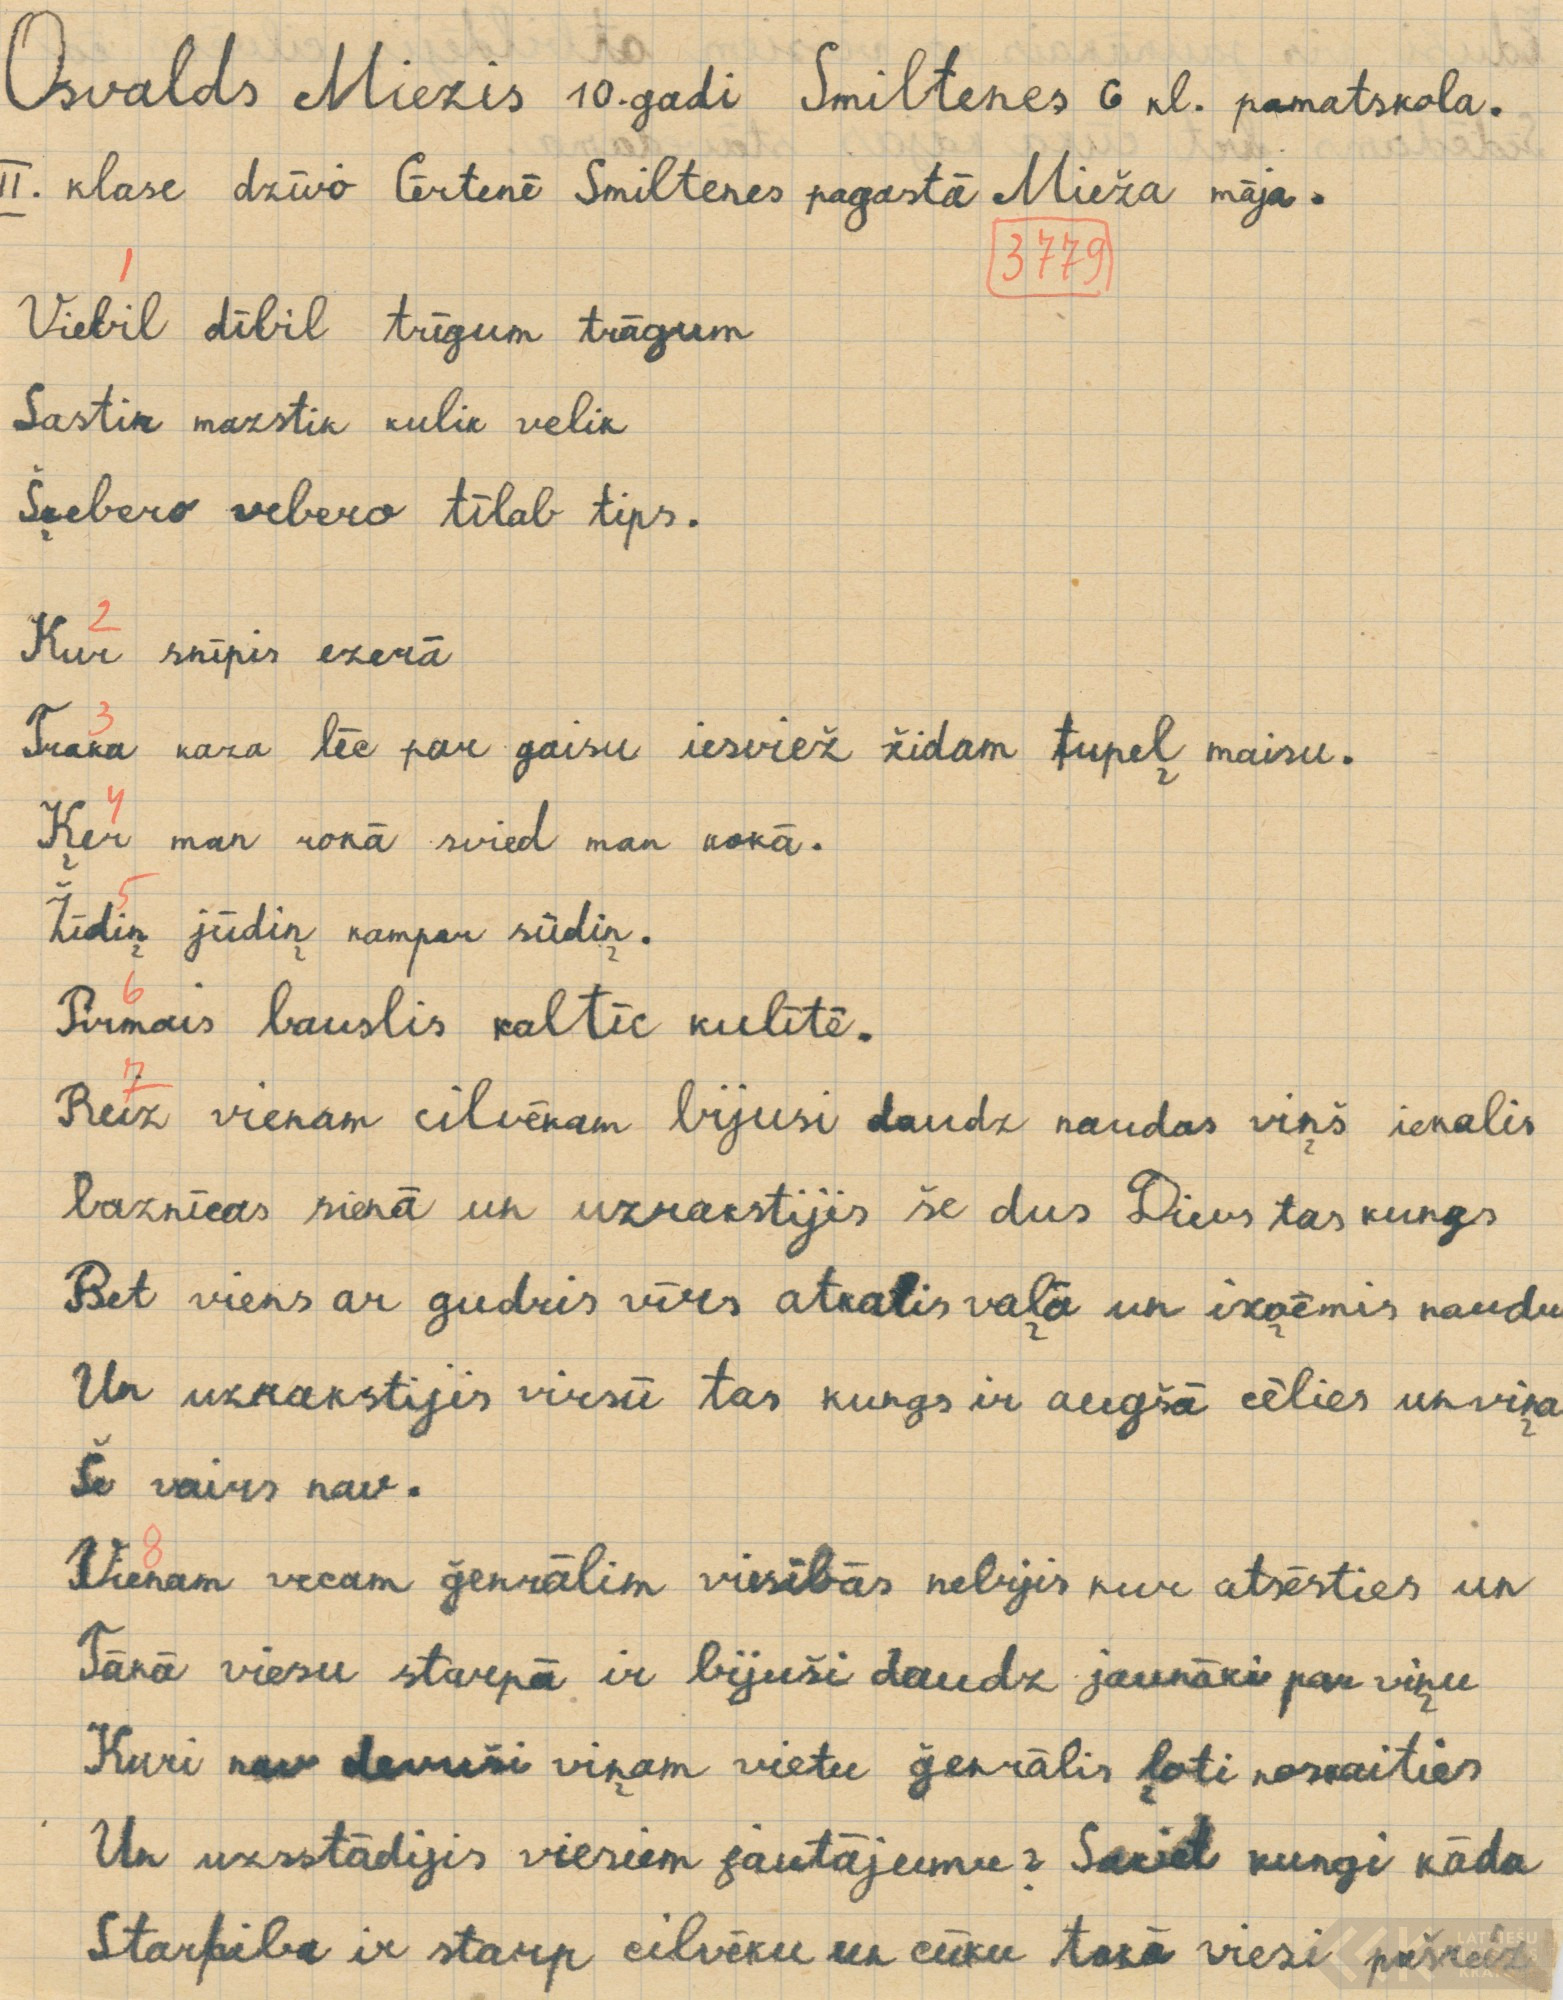 Osvalds Miezis 10.gadi Smiltenes 6 kl. pamatskola.
II. klase dzīvo Cērtenē Smiltenes pagastā Mieža māja.
3779
1
Viebil dībil trīgum trāgum
Sastik mazstik kulik velik
Šķebero vebero tīlab tips.
2
Kur snīpis ezerā
3
Traka kaza lēc par gaisu iesviež židam tupeļ maisu.
4
Ķer man rokā svied man kokā.
5
Žīdiņ jūdiņ kampar sūdiņ.
6
Pirmais bauslis kaltīc kulītē.
7
Reiz vienam cilvēkam bijusi daudz naudas viņš iekalis
baznīcas sienā un uzrakstijis še dus Dievs tas kungs
Bet viens ar gudris vīrs atkalis vaļā un izņēmis naudu
Un uzrakstijis virsū tas kungs ir augšā cēlies un viņa
Še vairs nav.
8
Vienam vecam ģenrālim viesībās nebijis kur atsēsties un
Tākā viesu starpā ir bijuši daudz jaunāki par viņu
Kuri nav devuši viņam vietu ģenrālis ļoti noskaities
Un uzsstādijis viesiem jautājumu? Sakiet kungi kāda
Starpiba ir starp cilvēku un cūku takā viesi pašreiz